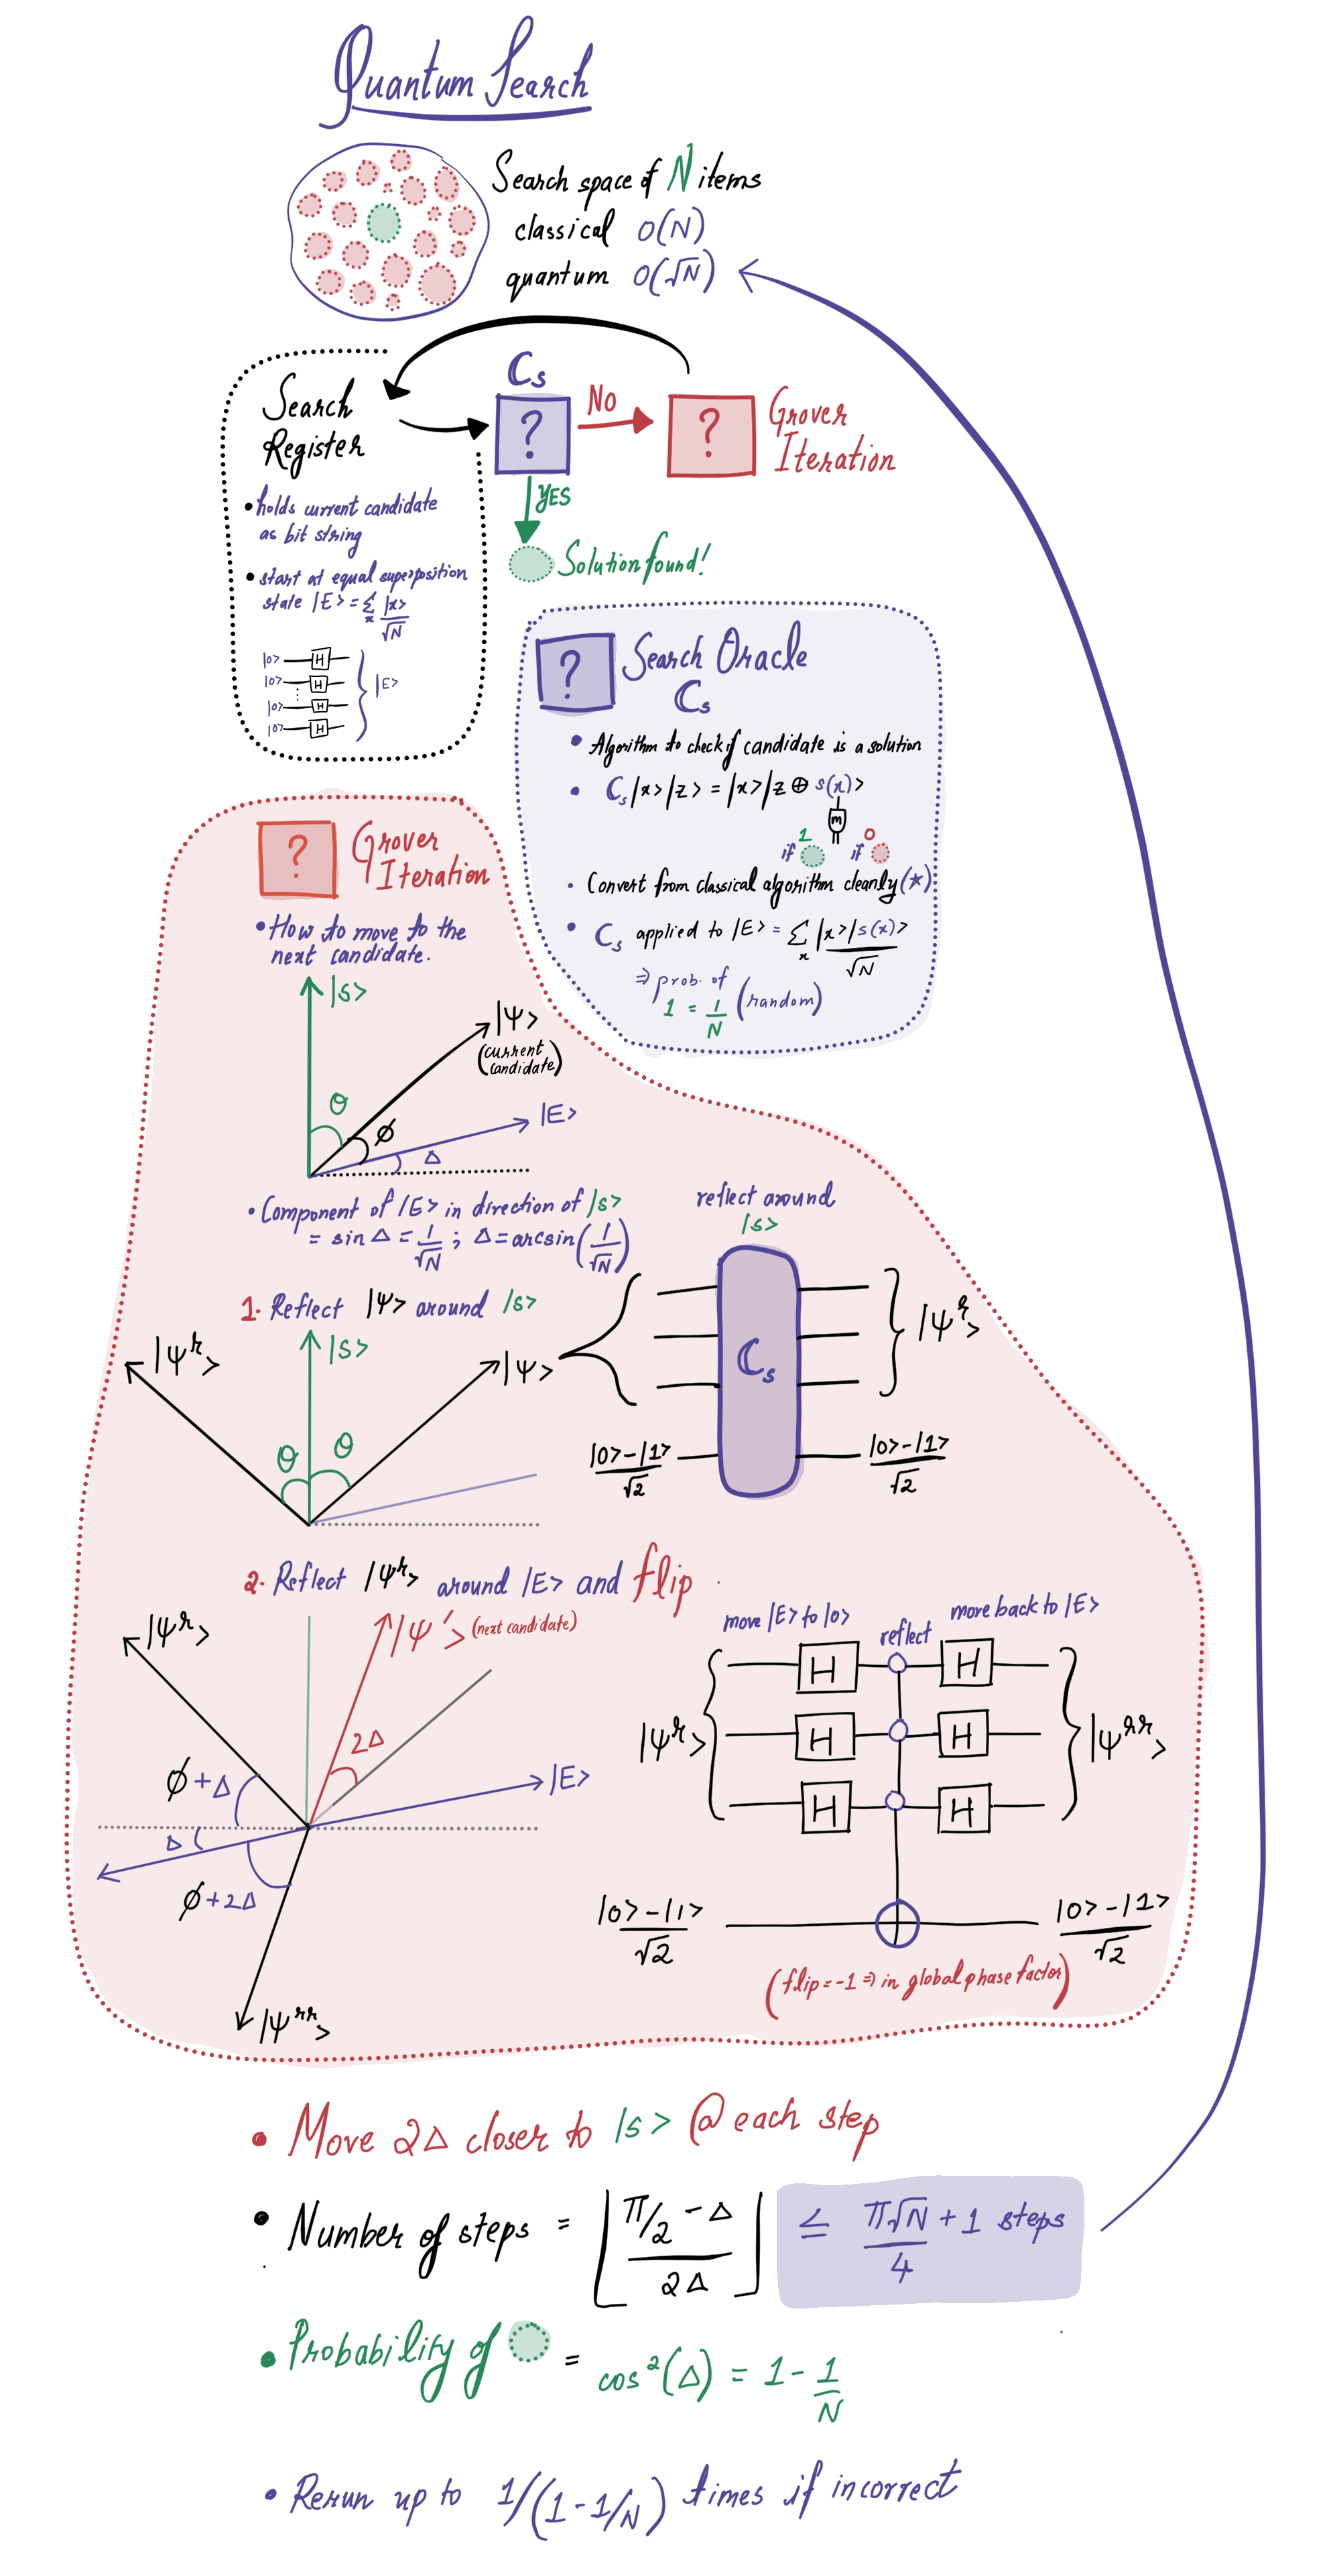 Quantum Search
Search space of N items
classical O(N)
quantum O(√N)
Search
Register
• holds current candidate
as bit string
• start at equal superposition
state |E> = Σx |x>/√N
|0> H
|0> H
⋮
|0> H
|0> H
|E>
ℂs
?
NO
?
Grover
Iteration
YES
Solution found!
?
Search Oracle
ℂs
• Algorithm to check if candidate is a solution
• ℂs|x>|z> = |x>|z ⊕ s(x)>
m
1 0
if if
• Convert from classical algorithm cleanly (*)
• ℂs applied to |E> = Σx |x>|s(x)>/√N
⇒ prob. of
1 = 1/N (random)
?
Grover
Iteration
• How to move to the
next candidate.
|s>
|ψ>
(current
candidate)
θ
ϕ
|E>
Δ
• Component of |E> in direction of |s>
= sin Δ = 1/√N ; Δ = arcsin(1/√N)
reflect around
|s>
1. Reflect |ψ> around |s>
|ψʳ>
|s>
|ψ>
θ θ
ℂs
|ψʳ>
|0>-|1>/√2
|0>-|1>/√2
2. Reflect |ψʳ> around |E> and flip
|ψʳ>
|ψ'> (next candidate)
2Δ
ϕ+Δ
|E>
Δ
ϕ+2Δ
|ψʳʳ>
move |E> to |0>
reflect
move back to |E>
|ψʳ>
H H
H H
H H
|ψʳʳ>
|0>-|1>/√2
|0>-|1>/√2
(flip = -1 ⇒ in global phase factor)
• Move 2Δ closer to |s> @ each step
• Number of steps = ⌊(π/2 - Δ)/2Δ⌋ ≤ π√N/4 + 1 steps
• Probability of = cos²(Δ) = 1 - 1/N
• Rerun up to 1/(1-1/N) times if incorrect